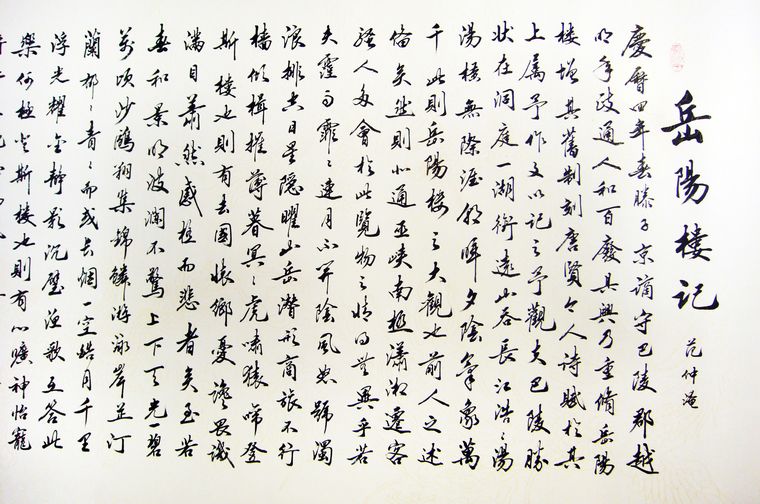 岳陽樓記
范仲淹
慶曆四年春滕子京謫守巴陵郡越
明年政通人和百廢具興乃重脩岳陽
樓增其舊制刻唐賢今人詩賦於其
上属予作文以記之予觀夫巴陵勝
状在洞庭一湖銜遠山吞長江浩々湯
湯横無際涯朝暉夕陰氣象萬
千此則岳陽樓之大觀也前人之述
備矣然則北通巫峽南極瀟湘遷客
騷人多會於此覽物之情得無異乎若
夫霪雨霏々連月不開陰風怒號濁
浪排空日星隱曜山岳潛形商旅不行
檣傾楫摧薄暮冥々虎嘯猿啼登
斯樓也則有去國懷鄉憂讒畏譏
滿目蕭然感極而悲者矣至若
春和景明波瀾不驚上下天光一碧
萬頃沙鷗翔集錦鱗游泳岸芷汀
蘭郁々青々而或長烟一空皓月千里
浮光耀金靜影沉璧漁歌互答此
樂何極登斯樓也則有心曠神怡寵